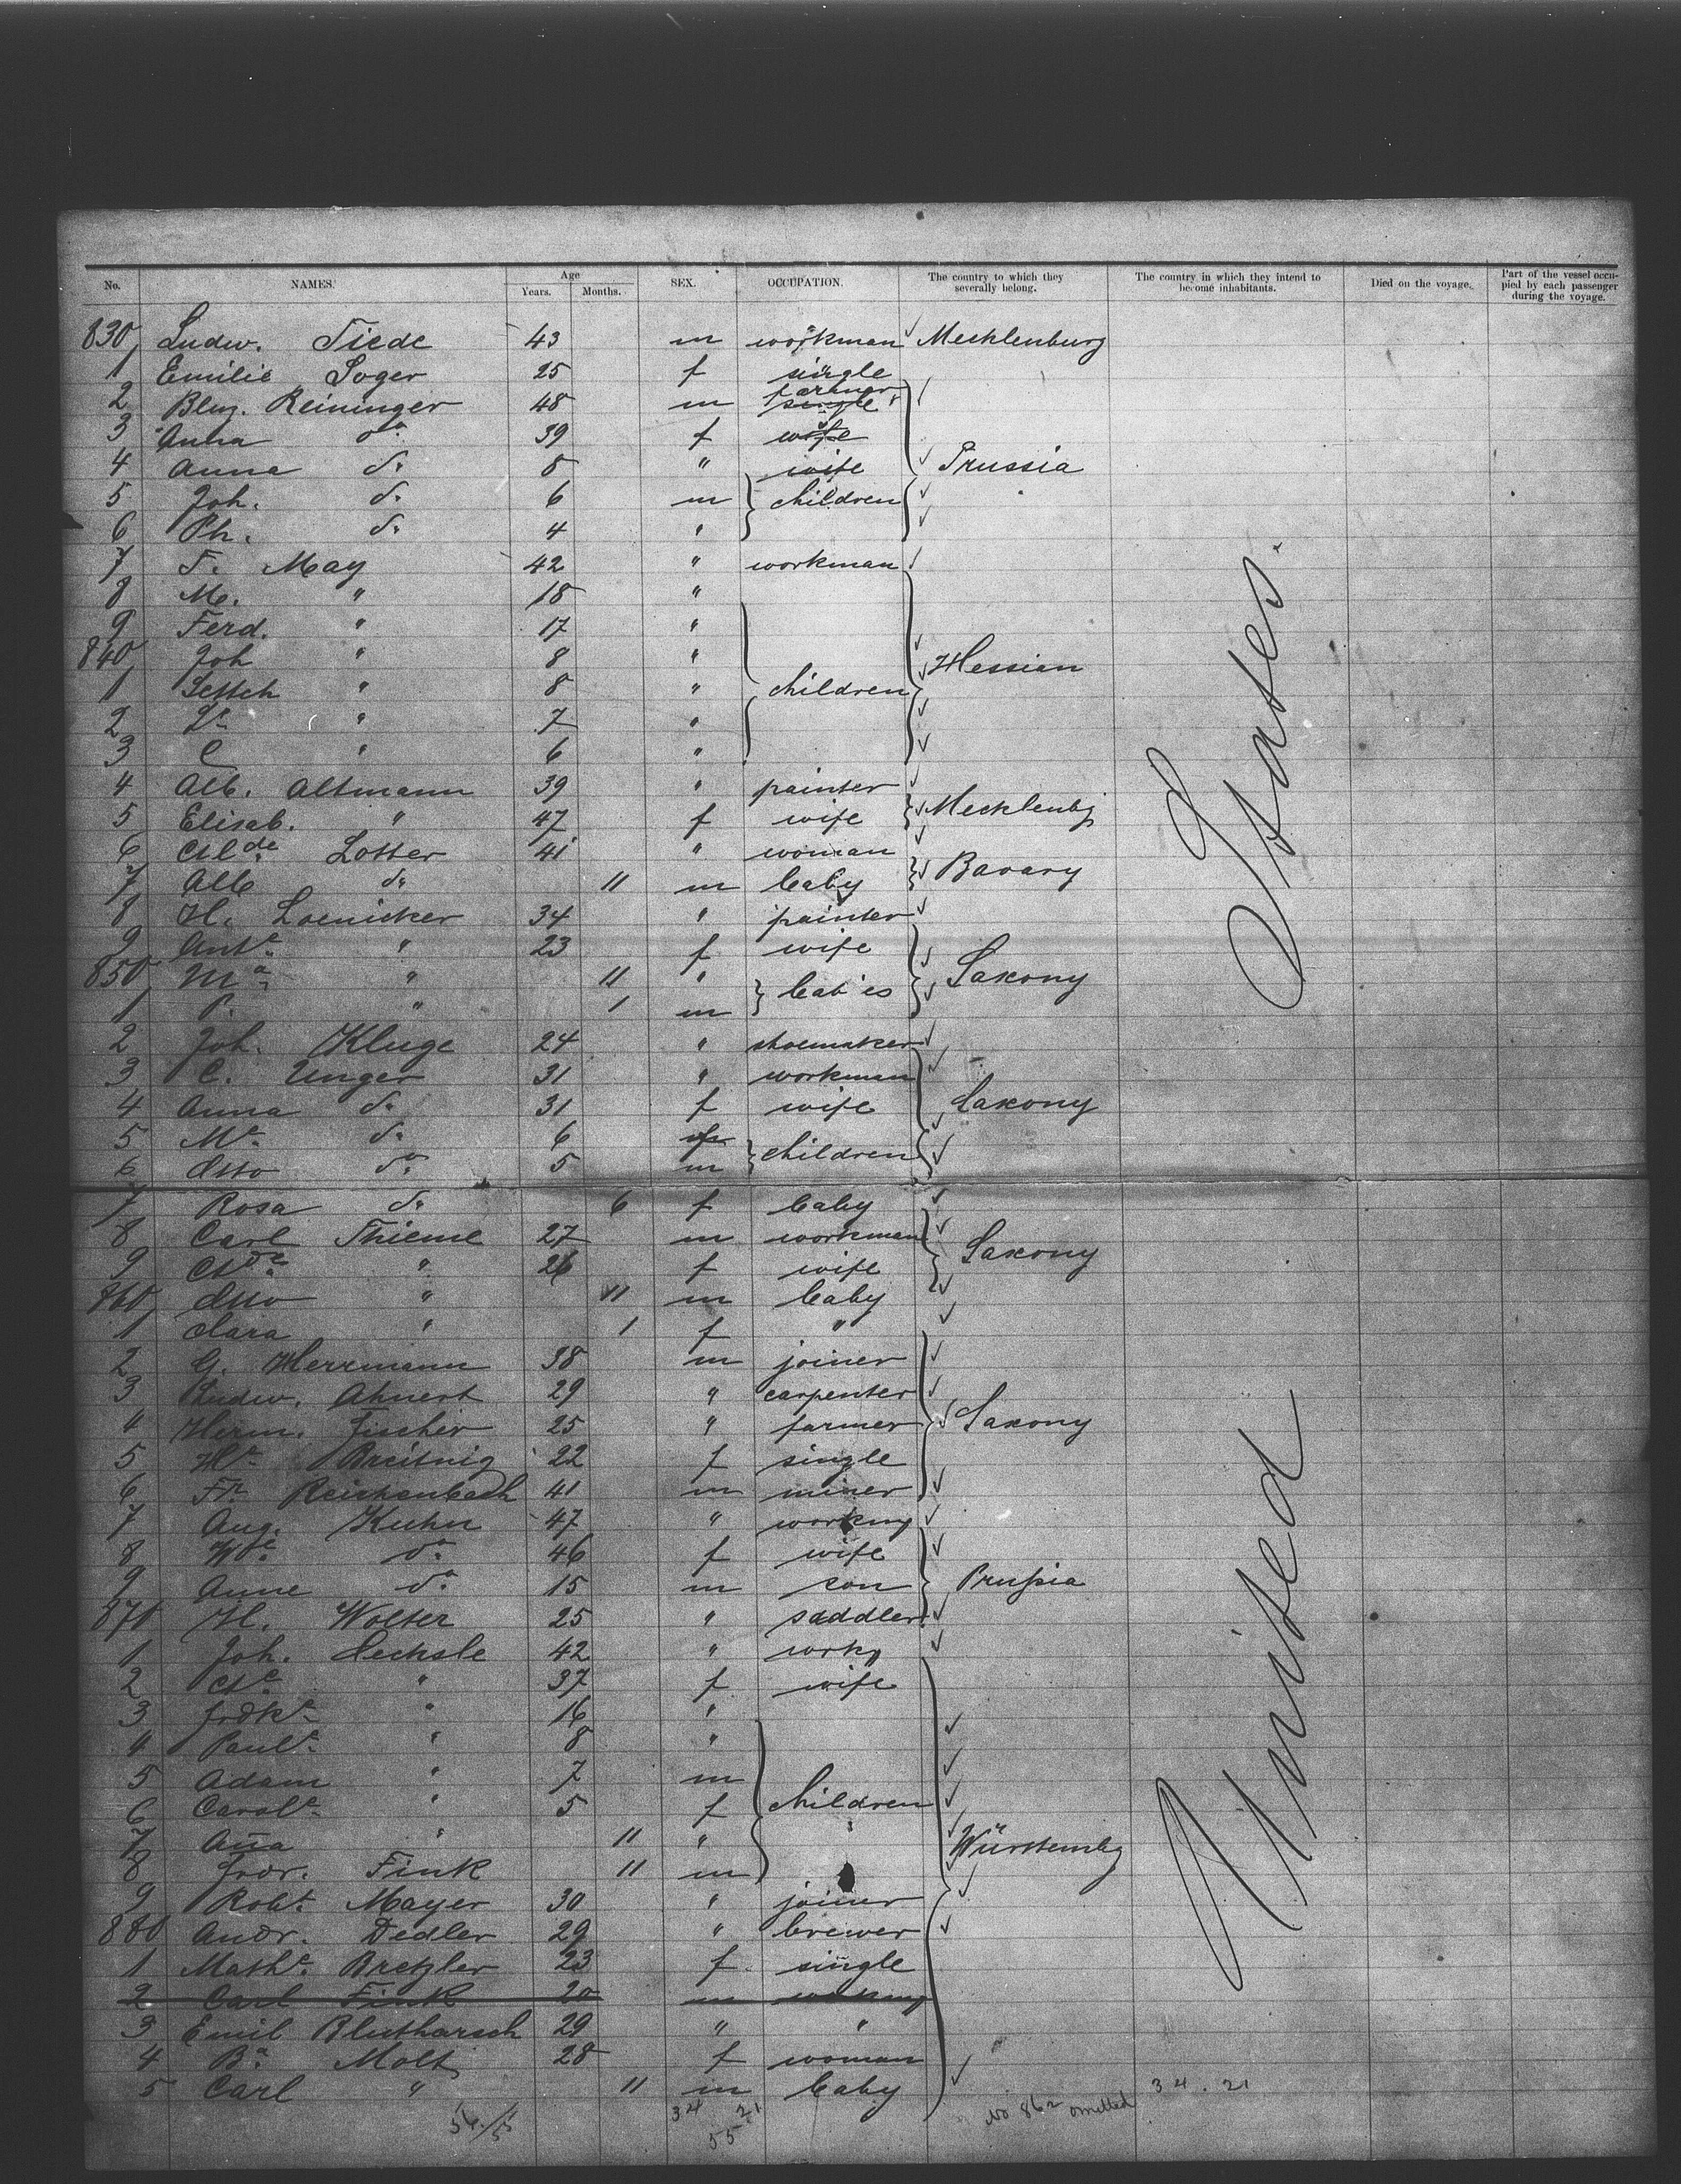 No. NAMES. Age Years. Months. SEX. OCCUPATION. The country to which they severally belong. The country in which they intend to become inhabitants. Died on the voyage. Part of the vessel occupied by each passenger during the voyage.
830 Ludw. Tiede 43 m workman Mecklenburg
1 Emilie Soger 25 f single
2 Reininger 48 m farmer single
3 Anna do. 39 f wife
4 Anna do. 8 " wife Prussia
5 Joh. do. 6 m children
6 Ph. do. 4 "
7 F. May 42 " workman
8 M. " 18 "
9 Ferd. " 17 "
840 Joh " 8 " Hessian
1 " 8 " children
2 " 7 "
3 C " 6 "
4 Alb. Altmann 39 " painter
5 Elisab. " 47 f wife Mecklenbg
6 Lotter 41 " woman
7 Alb do. 11 m baby Bavary
8 H. Loenicker 34 " painter
9 Ante. " 23 f wife
850 Ma. " 11 " babies Saxony
1 P. " 1 m
2 Joh. Kluge 24 " shoemaker
3 C. Unger 31 " workman
4 Anna do. 31 f wife Saxony
5 Me. do. 6 children
6 Otto do. 5 m
7 Rosa do. 6 f baby
8 Carl Thieme 27 m workman
9 " 26 f wife Saxony
860 Otto " 11 m baby
1 Clara " 1 f "
2 G. Herrmann 38 m joiner
3 Ludw. Ahnert 29 " carpenter
4 Herm. Fischer 25 " farmer Saxony
5 Breitnig 22 f single
6 Fr. Reichenbach 41 m miner
7 Aug. Kuhn 47 "
8 We. do. 46 f wife
9 Anne do. 15 m son Prussia
870 H. Wolter 25 " saddler
1 Joh. Oechsle 42 "
2 " 37 f wife
3 " 16 "
4 Paule. " 8 "
5 Adam " 7 m
6 " 5 f children
7 Aña " 11 " " Württembg
8 Frdr. Fink 11 m
9 Robt. Mayer 30 " joiner
880 Andr. Dedler 29 " brewer
1 Mathe. Bretzler 23 f single
2 Carl Fink 20 m
3 Emil Blutharsch 29 " "
4 Ba. Molt 28 f woman
5 Carl " 11 m baby
United States.
34 21
55
No 862 omitted
34. 21